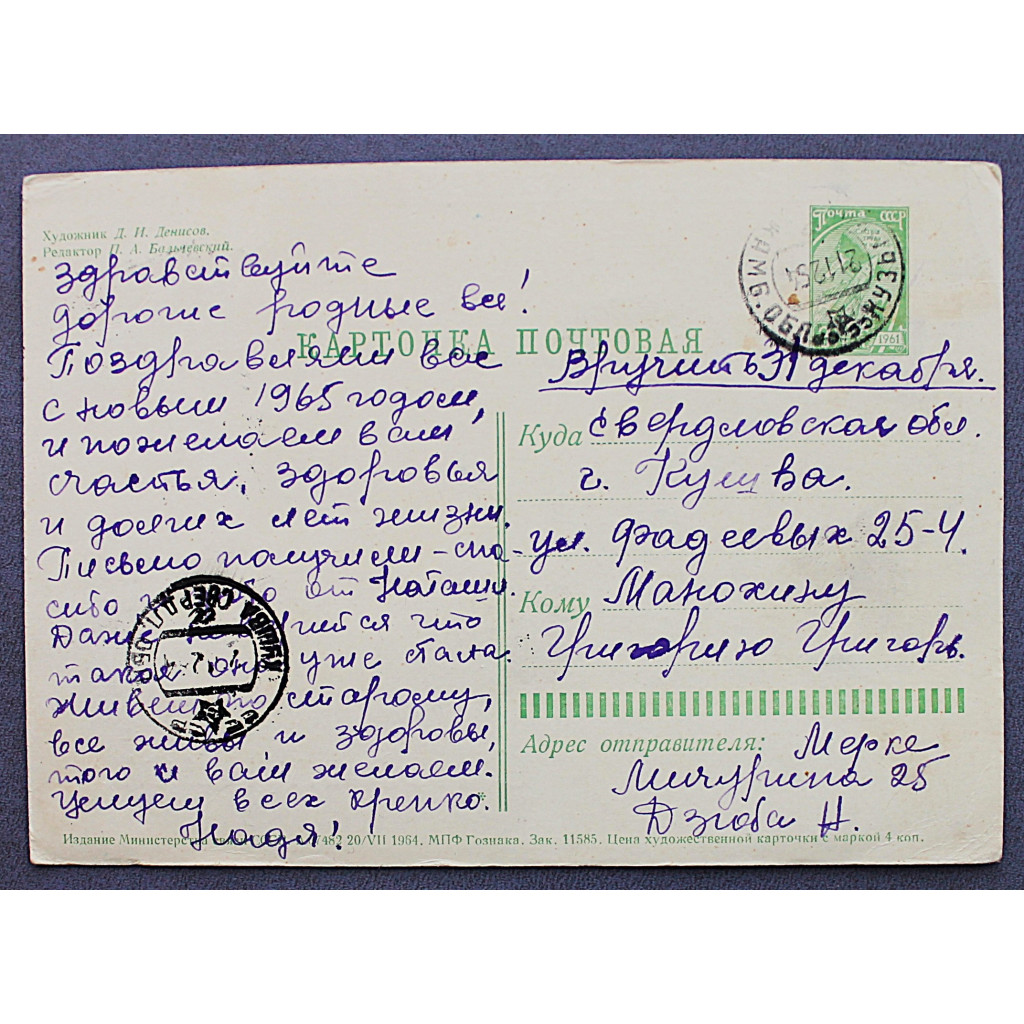 Художник Д. И. Денисов.
Редактор П. А. Бальчевский.
Почта СССР
1961
КАРТОЧКА ПОЧТОВАЯ
Здравствуйте
дорогие родные все!
Поздравляем вас
с новым 1965 годом,
и пожелаем вам
счастья, здоровья
и долгих лет жизни.
Письмо получили – спа-
сибо от Наташи.
Даже что
такая она уже стала.
Живем по старому,
все живы и здоровы,
того и вам желаем.
Целуем всех крепко.
Надя!
Вручить 31 декабря.
Куда Свердловская обл.
г. Кушва.
ул. Фадеевых 25-4.
Кому Маножину
Григорию Григорь.
Адрес отправителя: Мерке
Мичурина 25
Дзюба Н.
Издание Министерства связи СССР 482 20/VII 1964. МПФ Гознака. Зак. 11585. Цена художественной карточки с маркой 4 коп.